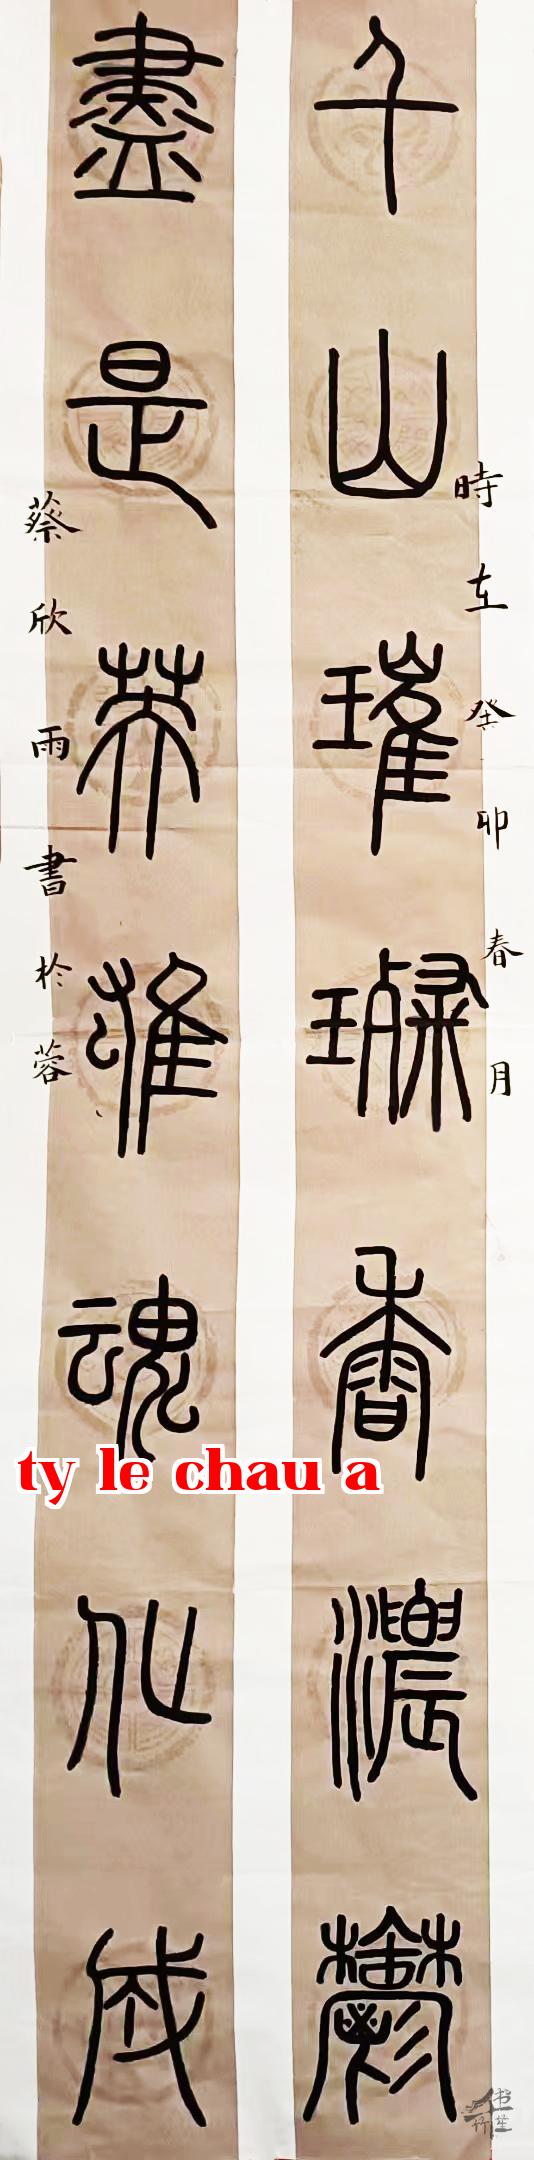 千山璀璨香濃鬱
盡是英雄魂化成
時在癸卯春月
蔡欣雨書於蓉
ty le chau a